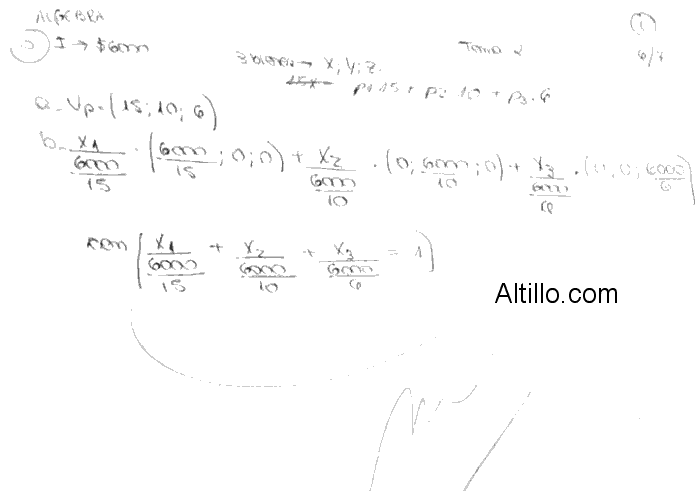 ALGEBRA
I → $6000
3 bienes → x; y; z.
Tema 2
1
6/7
p1.15 + p2.10 + p3.6
a- Vp = (15; 10; 6)
b- x1/(6000/15) · (6000/15; 0; 0) + x2/(6000/10) · (0; 6000/10; 0) + x3/(6000/6) · (0; 0; 6000/6)
con [x1/(6000/15) + x2/(6000/10) + x3/(6000/6) = 1]
Altillo.com